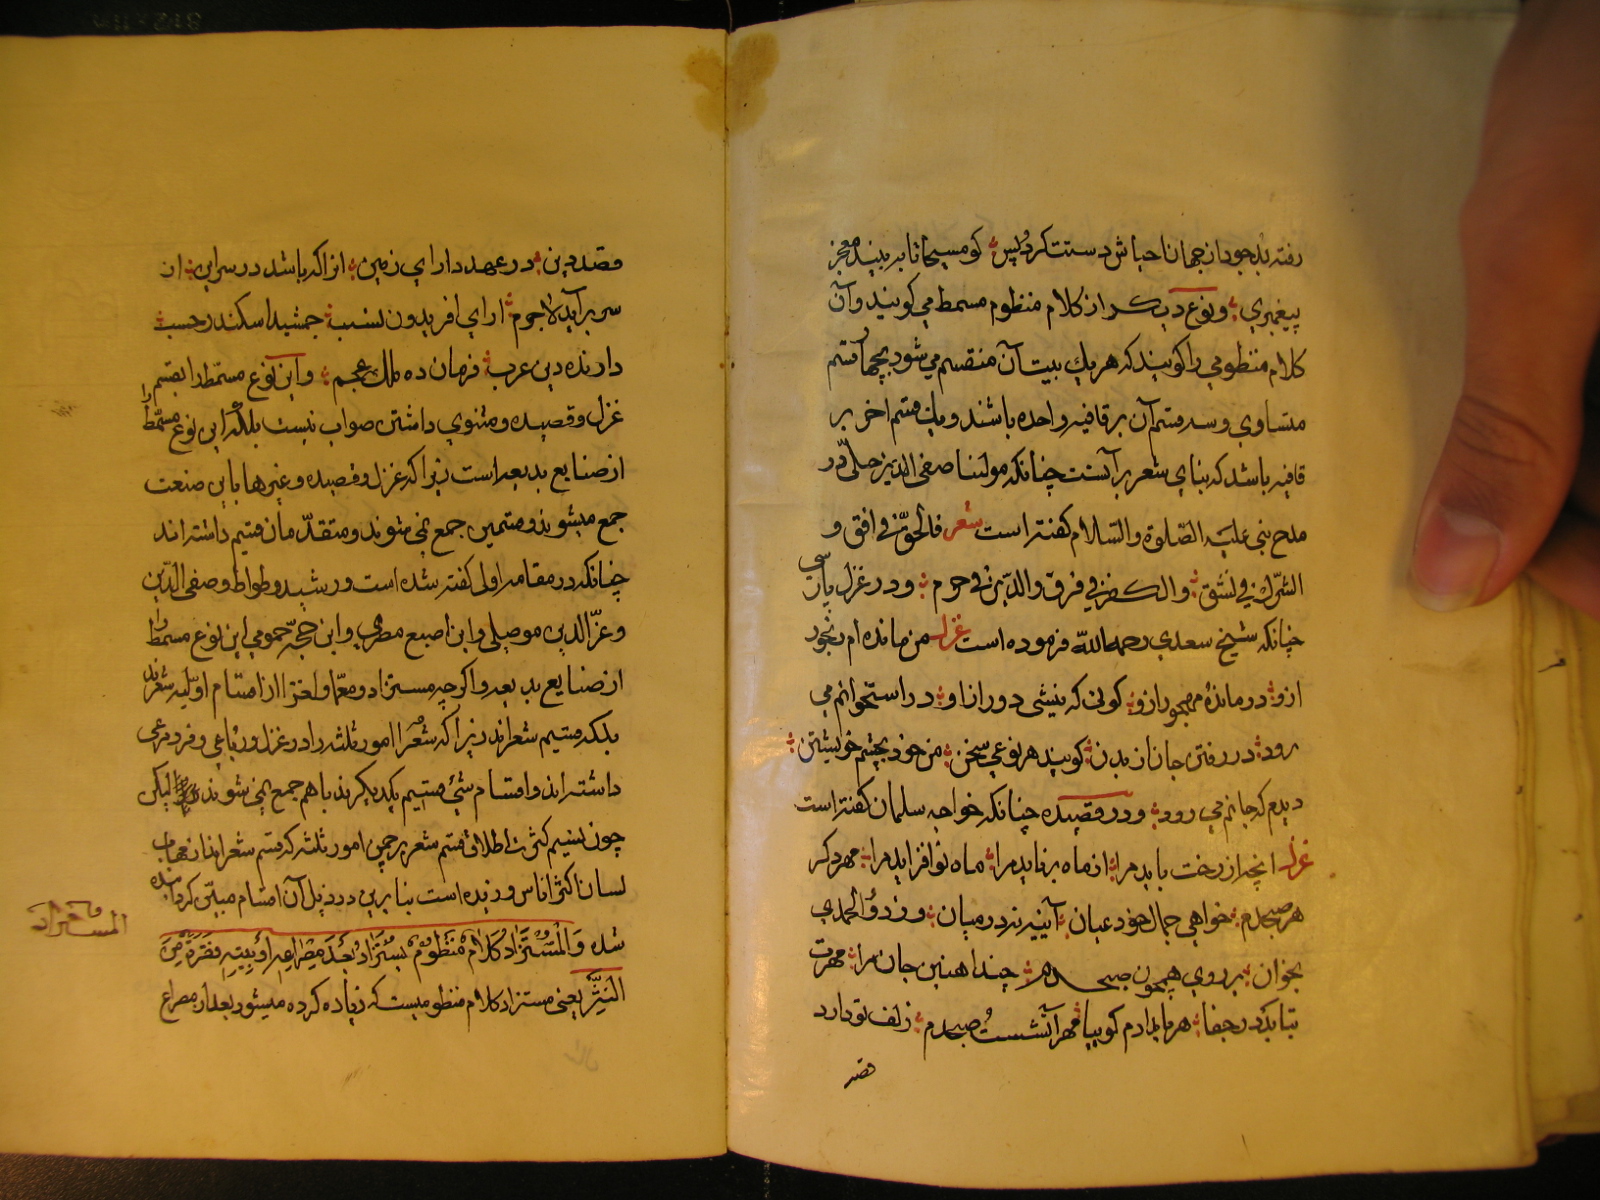 رفته بد جود از جهان احیاش دستت کرد پس کو مسیحا تا به بیند معجز
پیغمبری ونوع دیکر از کلام منظوم مسمط می کویند وآن
کلام منظومی را کویند که هر یك بیت آن منقسم می شود بچهار قسم
متساوی وسه قسم آن بر قافیه واحده باشند ویك قسم اخر بر
قافیه باشد که بنای شعر بر آنست چنانکه مولینا صفی الدین حلی در
مدح نبی علیه الصلوة والسلام کفته است شعر فالحق فی افق و
الشرك فی نفق والکفر فی فرق والدین فی حرم ودر غزل پارسی
چنانکه شیخ سعدی رحمه الله فرموده است غزل من مانده ام مهجور
ازو درمانده مهجور ازو کوئی که نیشی دور از او در استخوانم می
رود در رفتن جان از بدن کویند هر نوعی سخن من خود بچشم خویشتن
دیدم که جانم می رود ودر قصیده چنانکه خواجه سلمان کفته است
غزل انچه از رخت باید مرا از ماه برناید مرا ماه نو افزاید مرا مهر دکر
هر صبحدم خواهی جمال خود عیان آیینه نه در میان ورد
بخوان بر روی همچون صبحدم چند اهنین جان مرا مهرت
بتابد در جفا هر بامدادم کوییا مهر آتشست وصبحدم زلف تو دارد
قصد
قصد دین در عهد دارای زمین انرا که باشد در سر این از
سر برآید لاجرم ارای افریدون نسب جمشید اسکندر حسب
دارنده دین عرب فرمان ده ملك عجم واین نوع مسمط را بقسم
غزل وقصیده ومثنوی داشتن صواب نیست بلکه این نوع مسمط را
از صنایع بدیعه است زیرا که غزل وقصیده وغیرها باین صنعت
جمع میشوند وقسمین جمع نمی شوند ومتقدمان قسیم داشته اند
چنانکه در مقامه اولی کفته شده است ورشید وطواط وصفی الدین
وعز الدین موصلی وابن اصبع مصری وابن حجه حموی این نوع مسمط را
از صنایع بدیعه واکرچه مستزاد ومعما ولغز را از اقسام اولیه شعرند
بلکه قسیم شعراند زیرا که شعرا امور ثلثه را در غزل ورباعی وفرد مرعی
داشته اند واقسام شئ قسیم یکدیکرند باهم جمع نمی شوند لیکن
چون بسیم کثرت اطلاق قسم شعر بر همین امور ثلثه که قسم شعراند از
لسان اکثر اناس ورزیده است بنابرین در ذیل آن اقسام مبین کردانیده
شد والمستزاد کلام منظوم یستزاد بعد مصراعه او بیته فقرة من
النثر یعنی مستزاد کلام منظومیست که زیاده کرده میشود بعد از مصراع
المستزاد